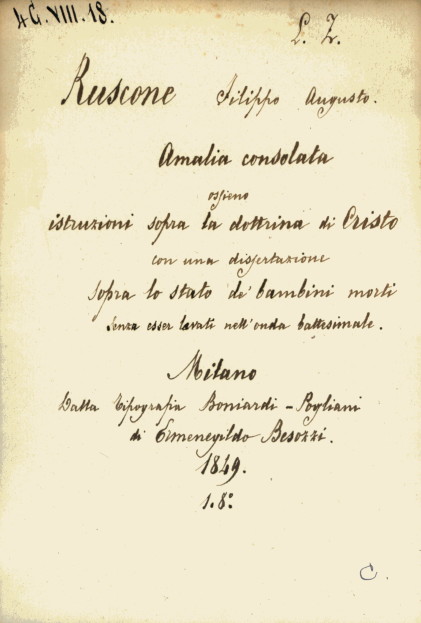 4G.VIII.18.
L. Z.
Ruscone Filippo Augusto.
Amalia consolata
ossieno
istruzioni sopra la dottrina di Cristo
con una dissertazione
sopra lo stato de' bambini morti
senza esser lavati nell'onda battesimale.
Milano
Dalla Tipografia Boniardi-Pogliani
di Ermenegildo Besozzi.
1849.
1.8º
C.